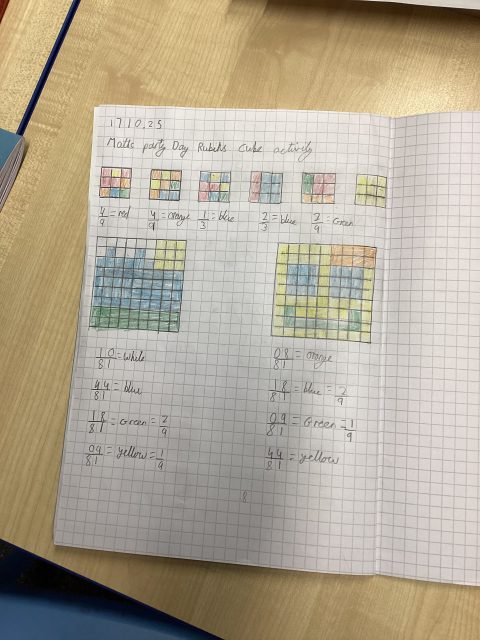 17.10.25
Maths party Day Rubiks Cube activity
4/9 = red 4/9 = orange 1/3 = blue 2/3 = blue 2/9 = Green
10/81 = White
44/81 = blue
18/81 = Green = 2/9
09/81 = yellow = 1/9
08/81 = orange
18/81 = blue = 2/9
09/81 = Green = 1/9
44/81 = yellow